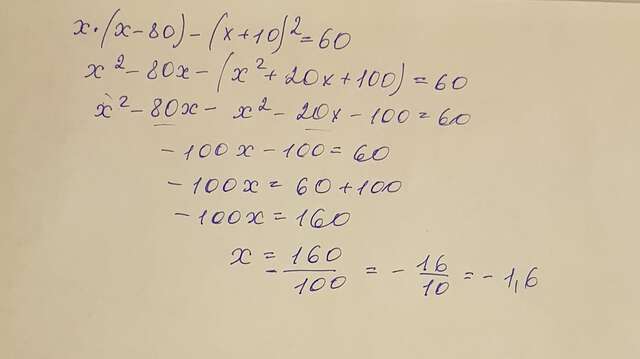 x·(x-80)-(x+10)²=60
x²-80x-(x²+20x+100)=60
x²-80x-x²-20x-100=60
-100x-100=60
-100x=60+100
-100x=160
x=-160/100=-16/10=-1,6